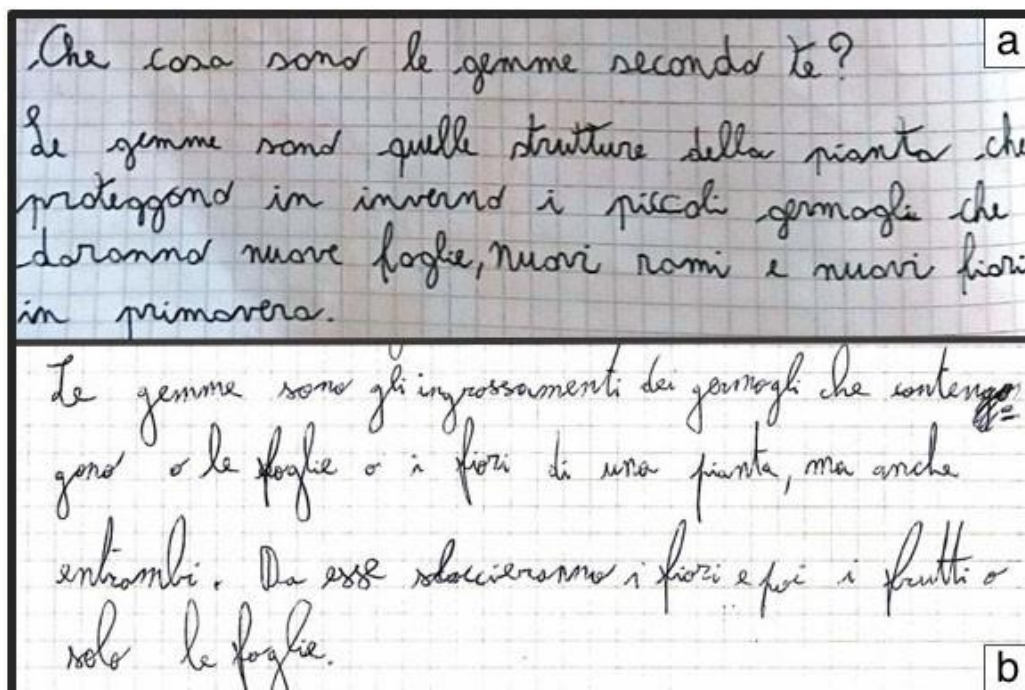 Che cosa sono le gemme secondo te?
a
Le gemme sono quelle strutture della pianta che
proteggono in inverno i piccoli germogli che
daranno nuove foglie, nuovi rami e nuovi fiori
in primavera.
Le gemme sono gli ingrossamenti dei germogli che conten
gono o le foglie o i fiori di una pianta, ma anche
entrambi. Da esse sboccieranno i fiori e poi i frutti o
solo le foglie.
b